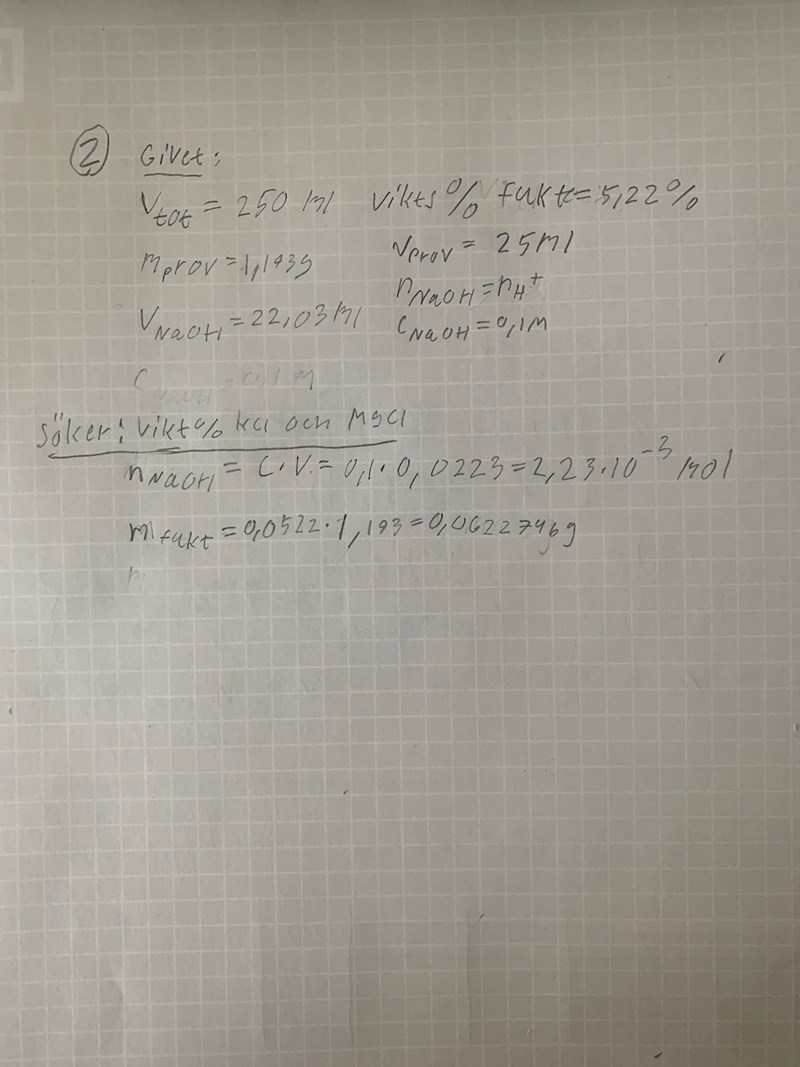 ② Givet:
Vtot = 250 ml vikts% Fukt = 5,22%
mprov = 1,193g vprov = 25ml
nNaOH = nH+
VNaOH = 22,03ml cNaOH = 0,1M
C 0,1M
Söker: vikt% kcl och Mgcl
nNaOH = C·V = 0,1·0,0223 = 2,23·10^-3 mol
mfukt = 0,0522·1,193 = 0,0622746g